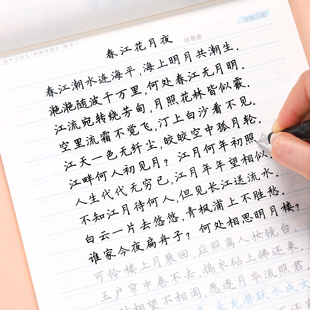 春江花月夜
张若虚
春江潮水连海平,海上明月共潮生.
滟滟随波千万里,何处春江无月明.
江流宛转绕芳甸,月照花林皆似霰.
空里流霜不觉飞,汀上白沙看不见.
江天一色无纤尘,皎皎空中孤月轮.
江畔何人初见月?江月何年初照
人生代代无穷已,江月年年望相似.
不知江月待何人,但见长江送流水.
白云一片去悠悠,青枫浦上不胜愁.
谁家今夜扁舟子?何处相思明月楼?
可怜楼上月裴回,应照离人妆镜台.
玉户帘中卷不去,捣衣砧上拂还来.
相望不相闻,愿逐月华流照君.
龙潜跃水成文